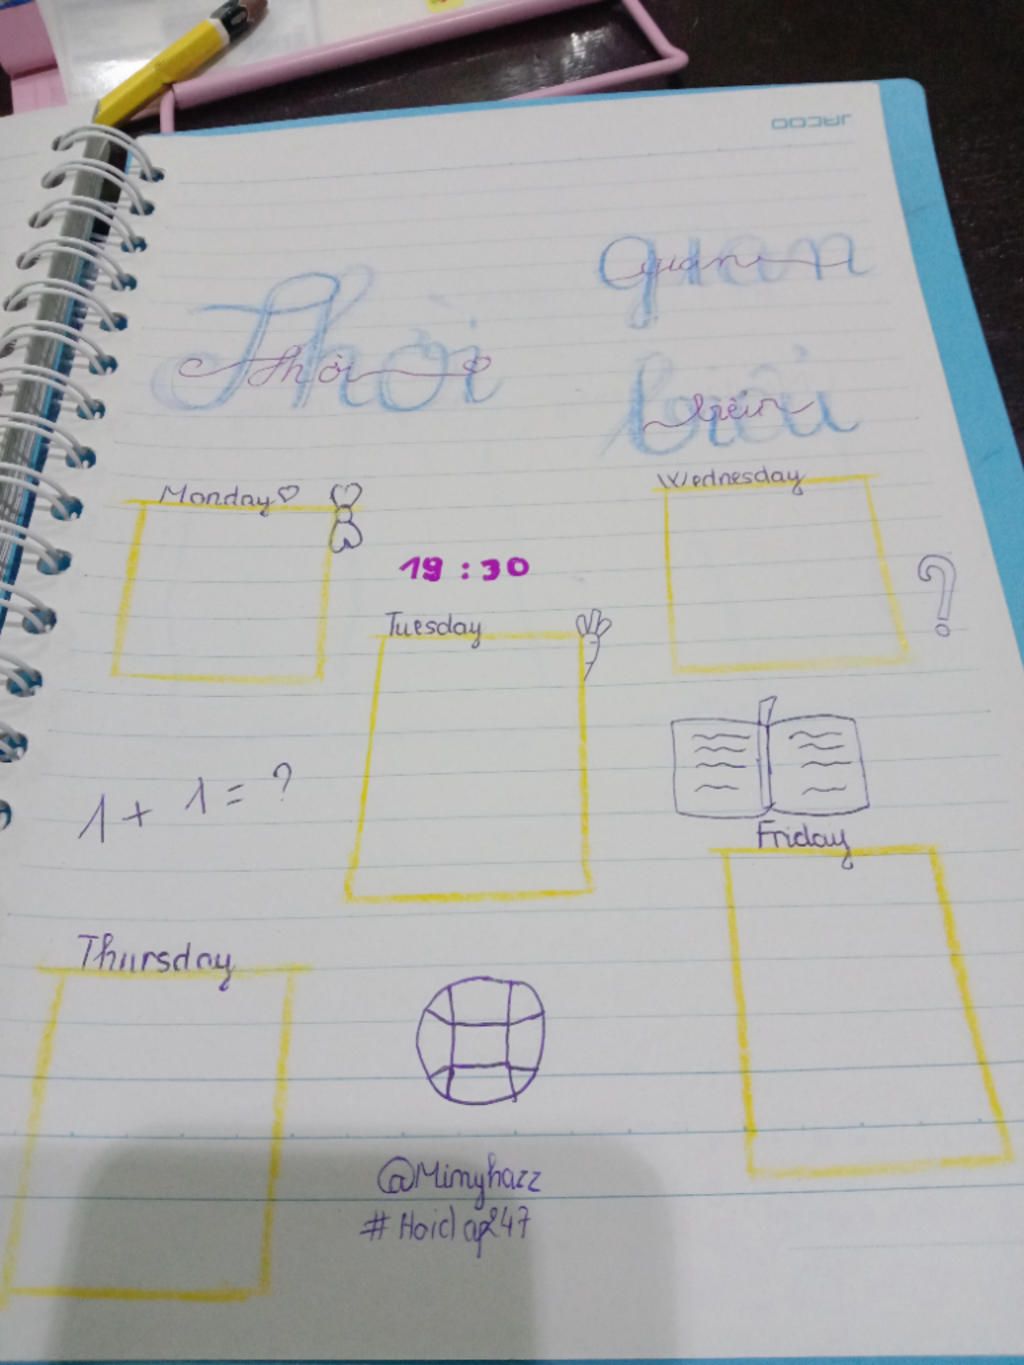 JACOO
Thời gian biểu
Thời gian biểu
Monday
Wednesday
19:30
Tuesday
?
1 + 1 = ?
Friday
Thursday
@Mimyhazz
#Hoidap247